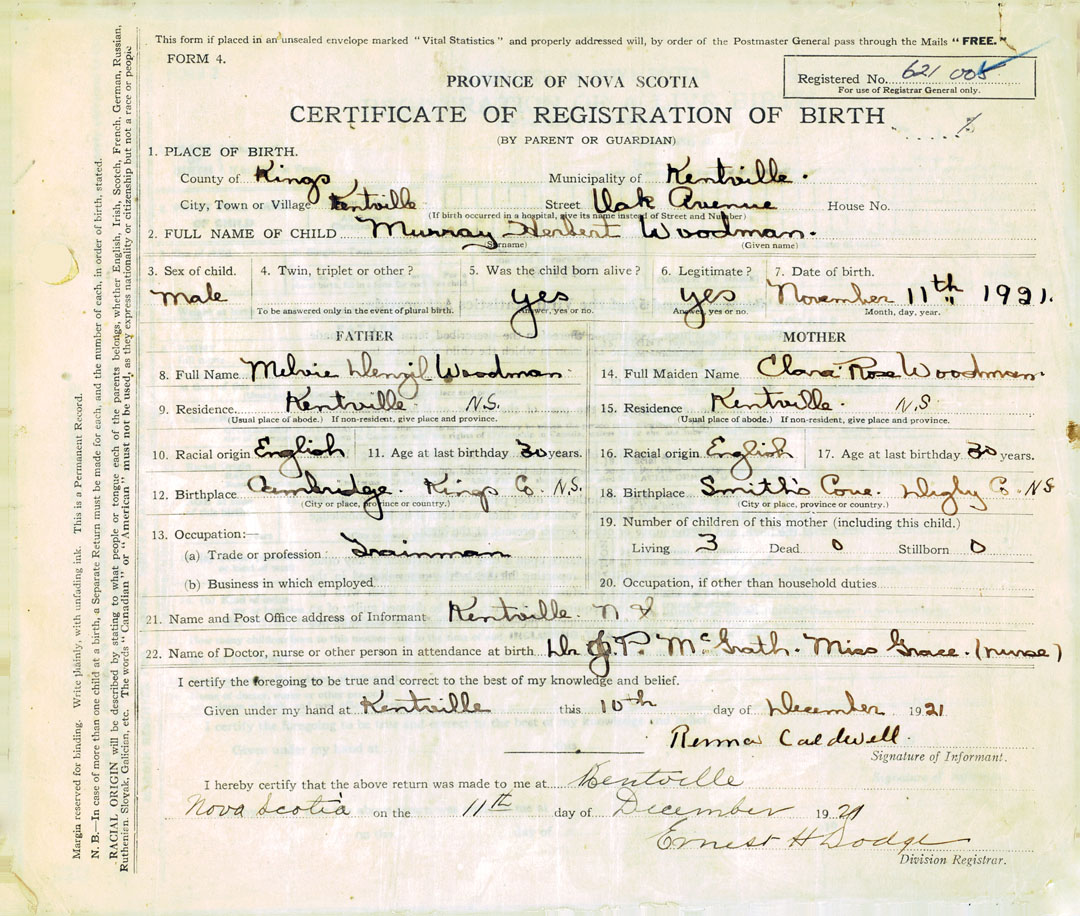 This form if placed in an unsealed envelope marked "Vital Statistics" and properly addressed will, by order of the Postmaster General pass through the Mails "FREE."
FORM 4.
Registered No. 621 005
For use of Registrar General only.
PROVINCE OF NOVA SCOTIA
CERTIFICATE OF REGISTRATION OF BIRTH
(BY PARENT OR GUARDIAN)
1. PLACE OF BIRTH.
County of Kings Municipality of Kentville.
City, Town or Village Kentville Street Oak Avenue House No.
(If birth occurred in a hospital, give its name instead of Street and Number)
2. FULL NAME OF CHILD Murray Herbert Woodman.
(Surname) (Given name)
3. Sex of child. 4. Twin, triplet or other? 5. Was the child born alive? 6. Legitimate? 7. Date of birth.
Male yes yes November 11th 1921.
To be answered only in the event of plural birth. Answer, yes or no. Answer, yes or no. Month, day, year.
FATHER MOTHER
8. Full Name Melvie Denzil Woodman 14. Full Maiden Name Clara Rose Woodman.
9. Residence Kentville N.S. 15. Residence Kentville. N.S
(Usual place of abode.) If non-resident, give place and province. (Usual place of abode.) If non-resident, give place and province.
10. Racial origin English 11. Age at last birthday 30 years. 16. Racial origin English 17. Age at last birthday 30 years.
12. Birthplace Cambridge. Kings Co. N.S. 18. Birthplace Smith's Cove. Digby Co. N.S
(City or place, province or country.) (City or place, province or country.)
13. Occupation:— 19. Number of children of this mother (including this child.)
(a) Trade or profession: Trainman Living 3 Dead 0 Stillborn 0
(b) Business in which employed 20. Occupation, if other than household duties
21. Name and Post Office address of Informant Kentville. N S
22. Name of Doctor, nurse or other person in attendance at birth Dr J.P. McGrath. Miss Grace. (nurse)
I certify the foregoing to be true and correct to the best of my knowledge and belief.
Given under my hand at Kentville this 10th day of December 1921
Renna Caldwell.
Signature of Informant.
I hereby certify that the above return was made to me at Kentville
Nova Scotia on the 11th day of December 1921
Ernest H Dodge
Division Registrar.
Margin reserved for binding. Write plainly, with unfading ink. This is a Permanent Record.
N. B.—In case of more than one child at a birth, a Separate Return must be made for each, and the number of each, in order of birth, stated.
RACIAL ORIGIN will be described by stating to what people or tongue each of the parents belongs, whether English, Irish, Scotch, French, German, Russian,
Ruthenian, Slovak, Galician, etc. The words "Canadian" or "American" must not be used, as they express nationality or citizenship but not a race or people